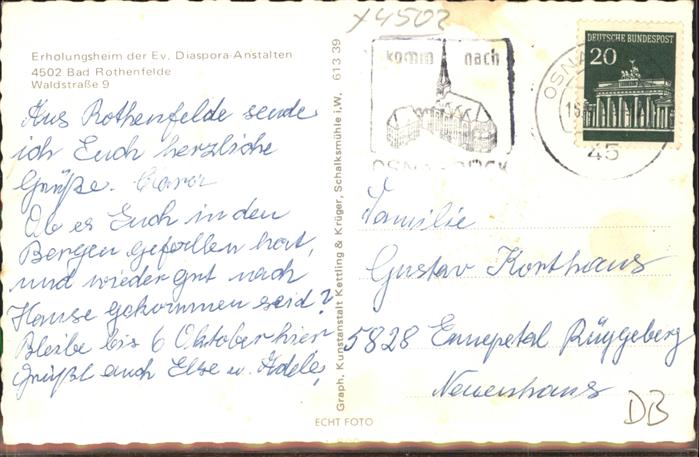 x4502
Erholungsheim der Ev. Diaspora-Anstalten
4502 Bad Rothenfelde
Waldstraße 9
Aus Rothenfelde sende
ich Euch herzliche
Grüße. Cara
Ob es Euch in den
Bergen gefallen hat,
und wieder gut nach
Hause gekommen seid?
Bleibe bis 6 Oktober hier
Grüßt auch Else u. Adele,
Graph. Kunstanstalt Kettling & Krüger, Schalksmühle i.W. 613 39
ECHT FOTO
komm nach
OSNABRÜCK
OSNA
45
DEUTSCHE BUNDESPOST
20
Familie
Gustav Korthaus
5828 Ennepetal Rüggeberg
Neuenhaus
DB